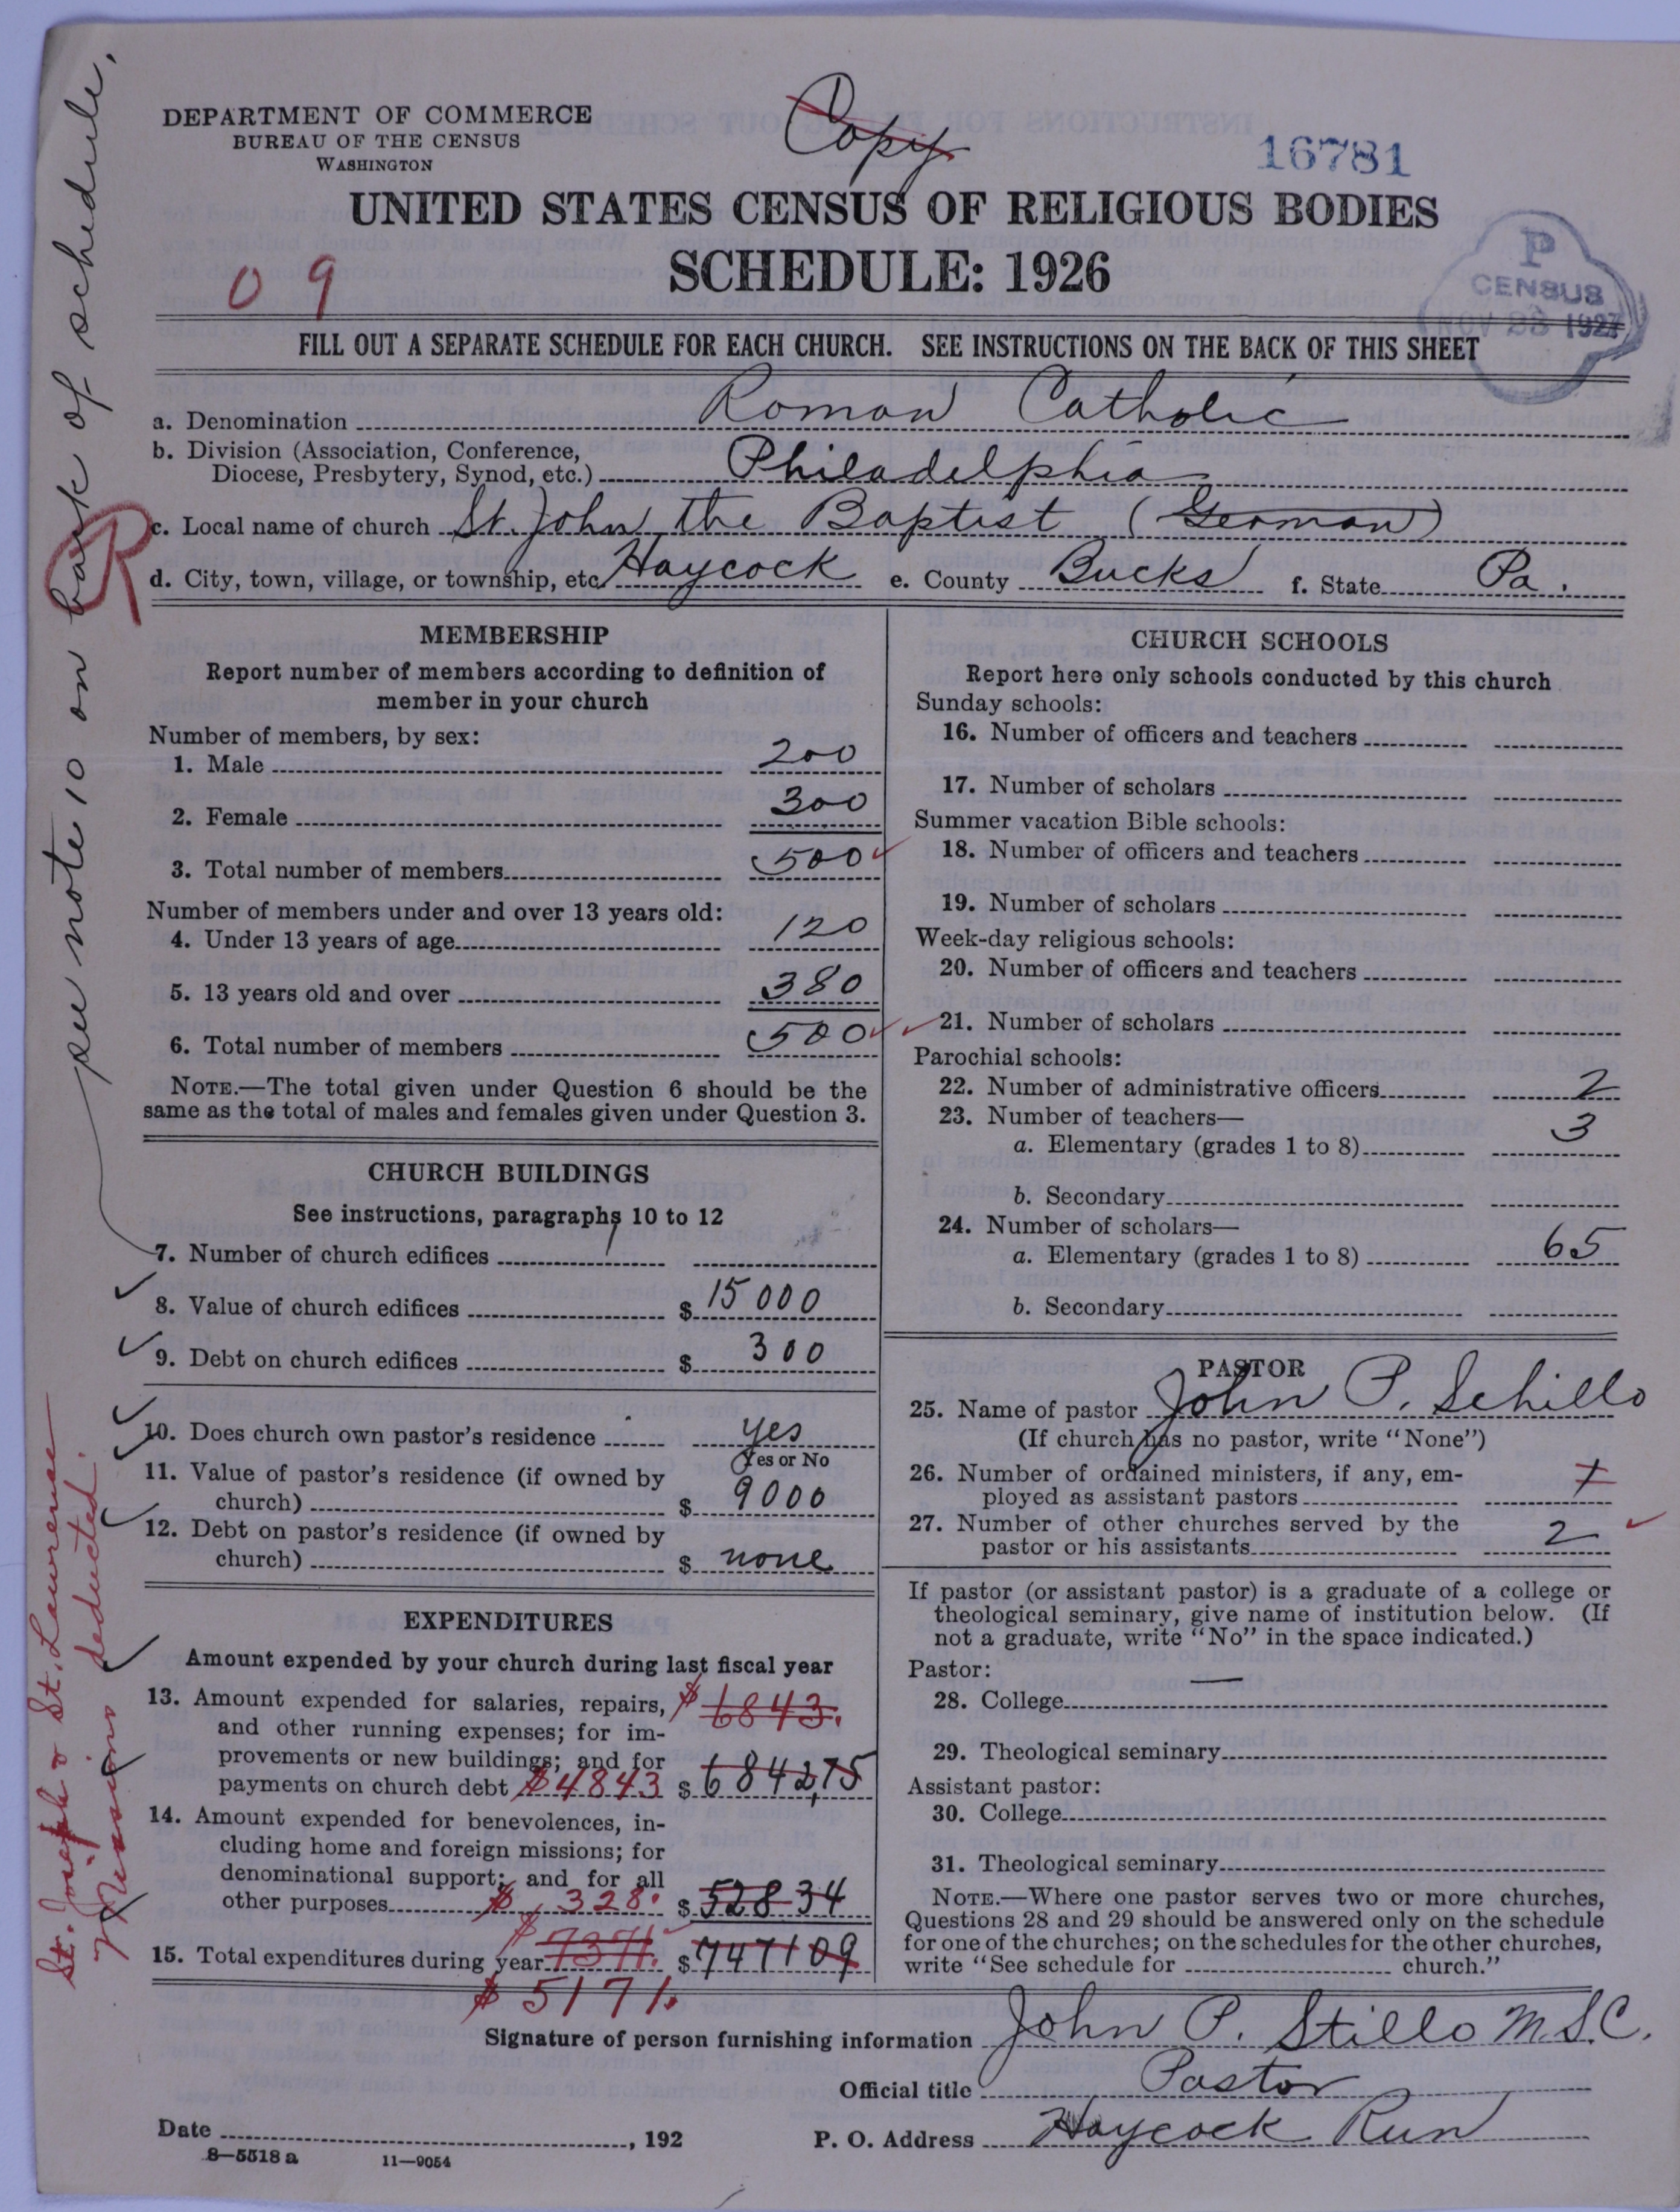 DEPARTMENT OF COMMERCE
BUREAU OF THE CENSUS
WASHINGTON
Copy
16781
UNITED STATES CENSUS OF RELIGIOUS BODIES
SCHEDULE: 1926
09
P
CENSUS
NOV 28 1927
FILL OUT A SEPARATE SCHEDULE FOR EACH CHURCH. SEE INSTRUCTIONS ON THE BACK OF THIS SHEET
a. Denomination Roman Catholic
b. Division (Association, Conference,
Diocese, Presbytery, Synod, etc.) Philadelphia
c. Local name of church St. John the Baptist (German)
d. City, town, village, or township, etc. Haycock e. County Bucks f. State Pa.
R
see note 10 on back of schedule.
MEMBERSHIP
Report number of members according to definition of
member in your church
Number of members, by sex:
1. Male 200
2. Female 300
3. Total number of members 500
Number of members under and over 13 years old:
4. Under 13 years of age 120
5. 13 years old and over 380
6. Total number of members 500
NOTE.—The total given under Question 6 should be the
same as the total of males and females given under Question 3.
CHURCH BUILDINGS
See instructions, paragraphs 10 to 12
7. Number of church edifices 1
8. Value of church edifices $ 15000
9. Debt on church edifices $ 300
10. Does church own pastor's residence yes
Yes or No
11. Value of pastor's residence (if owned by
church) $ 9000
12. Debt on pastor's residence (if owned by
church) $ none
EXPENDITURES
Amount expended by your church during last fiscal year
13. Amount expended for salaries, repairs, $ 6843.
and other running expenses; for im-
provements or new buildings; and for
payments on church debt $4843 $ 6842,75
14. Amount expended for benevolences, in-
cluding home and foreign missions; for
denominational support; and for all
other purposes $ 328. $ 528 34
15. Total expenditures during year $ 7371. $ 7471 09
$ 5171.
St. Joseph & St. Lawrence
Missions deducted.
CHURCH SCHOOLS
Report here only schools conducted by this church
Sunday schools:
16. Number of officers and teachers
17. Number of scholars
Summer vacation Bible schools:
18. Number of officers and teachers
19. Number of scholars
Week-day religious schools:
20. Number of officers and teachers
21. Number of scholars
Parochial schools:
22. Number of administrative officers 2
23. Number of teachers—
a. Elementary (grades 1 to 8) 3
b. Secondary
24. Number of scholars—
a. Elementary (grades 1 to 8) 65
b. Secondary
PASTOR
25. Name of pastor John P. Schillo
(If church has no pastor, write "None")
26. Number of ordained ministers, if any, em-
ployed as assistant pastors 1
27. Number of other churches served by the
pastor or his assistants 2
If pastor (or assistant pastor) is a graduate of a college or
theological seminary, give name of institution below. (If
not a graduate, write "No" in the space indicated.)
Pastor: —
28. College
29. Theological seminary
Assistant pastor:
30. College
31. Theological seminary
NOTE.—Where one pastor serves two or more churches,
Questions 28 and 29 should be answered only on the schedule
for one of the churches; on the schedules for the other churches,
write "See schedule for church."
Signature of person furnishing information John P. Stillo M.S.C.
Official title Pastor
Date , 192 P. O. Address Haycock Run
8—5518 a 11—9054